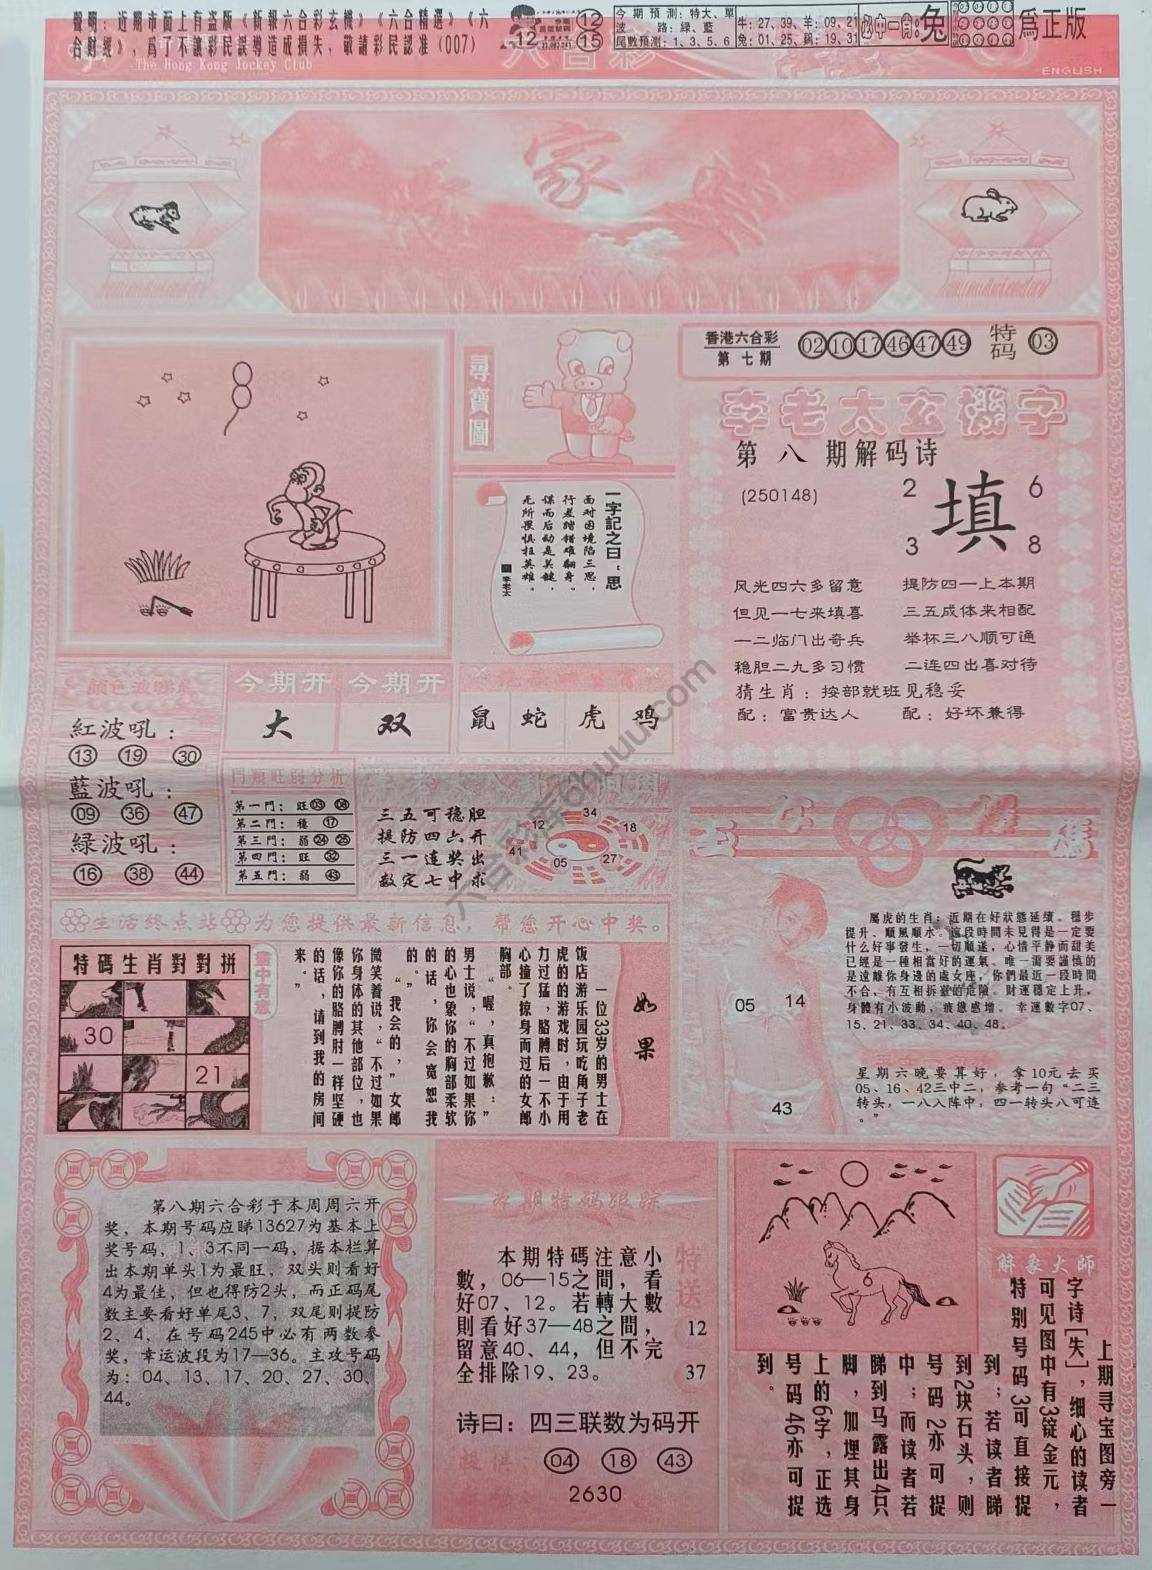 聲明：近期市面上有盗版《新報六合彩玄機》《六合精選》《六
合財經》，爲了不讓彩民誤導造成損失，敬請彩民認准（007）
The Hong Kong Jockey Club
12
12
15
今期預測：特大、單
波路：綠、藍
尾數預測：1、3、5、6
牛：27、39、羊：09、21
兔：01、25、鷄：19、31
必中一肖：兔
爲正版
六合彩
ENGLISH
家
香港六合彩
第七期
02 10 17 46 47 49
特码
03
尋寶圖
李老太玄機字
第八期解码诗
(250148)
2 6
填
3 8
风光四六多留意 提防四一上本期
但见一七来填喜 三五成体来相配
一二临门出奇兵 举杯三八顺可通
稳胆二九多习惯 二连四出喜对待
猜生肖：按部就班见稳妥
配：富贵达人 配：好坏兼得
一字記之曰：思
面对困境陷三思，
行差踏错难翻身。
谋而后动是关键，
无所畏惧枉英雄。
李老太
今期开 今期开
大 双
鼠 蛇 虎 鸡
紅波吼：
13 19 30
藍波吼：
09 36 47
綠波吼：
16 38 44
門類旺弱分析
第一門：旺 03 08
第二門：穩 17
第三門：弱 24 25
第四門：旺 32
第五門：弱 43
三五可稳胆
提防四六开
三一连奖出
数定七中求
12 34 18 41 05 27
生活终点站 为您提供最新信息，帮您开心中奖。
特碼生肖對對拼
30
21
畫中有意
如果
一位33岁的男士在
饭店游乐园玩吃角子老
虎的的游戏时，由于用
力过猛，胳膊后一不小
心撞了擦身而过的女郎
胸部。
“喔，真抱歉：”
男士说，“不过如果你
的心也象你的胸部柔软
的话，你会宽恕我
的。”
“我会的，”女郎
微笑着说，“不过如果
你身体的其他部位，也
像你的胳膊肘一样坚硬
的话，请到我的房间
来。”
05 14
43
屬虎的生肖：近期在好狀態延續。穩步
提升、順風順水。這段時間未見得是一定要
什么好事發生，一切順遂，心情平静而甜美
已經是一種相當好的運氣。唯一需要謹慎的
是遠離你身邊的處女座，你們最近一段時間
不合，有互相拆臺的危險。財運穩定上升，
身體有小波動，疲憊感增。幸運數字07、
15、21、33、34、40、48。
星期六晚要算好，拿10元去买
05、16、42三中二，参考一句“二三
转头，一八入阵中，四一转头八可连
。”
第八期六合彩于本周周六开
奖，本期号码应睇13627为基本上
奖号码，1、3不同一码，据本栏算
出本期单头1为最旺，双头则看好
4为最佳，但也得防2头，而正码尾
数主要看好单尾3、7，双尾则提防
2、4，在号码245中必有两数参
奖，幸运波段为17—36。主攻号码
为：04、13、17、20、27、30、
44。
近期特码跟踪
本期特碼注意小
數，06—15之間，看
好07、12。若轉大數
則看好37—48之間，
留意40、44，但不完
全排除19、23。
特送
12
37
诗曰：四三联数为码开
提供：
04 18 43
2630
6
解象大师
上期寻宝图旁一
字诗〔失〕，细心的读者
可见图中有3锭金元，
特别号码3可直接捉
到；若读者睇
到2块石头，则
号码2亦可捉
中；而读者若
睇到马露出4只
脚，加埋其身
上的6字，正选
号码46亦可捉
到。